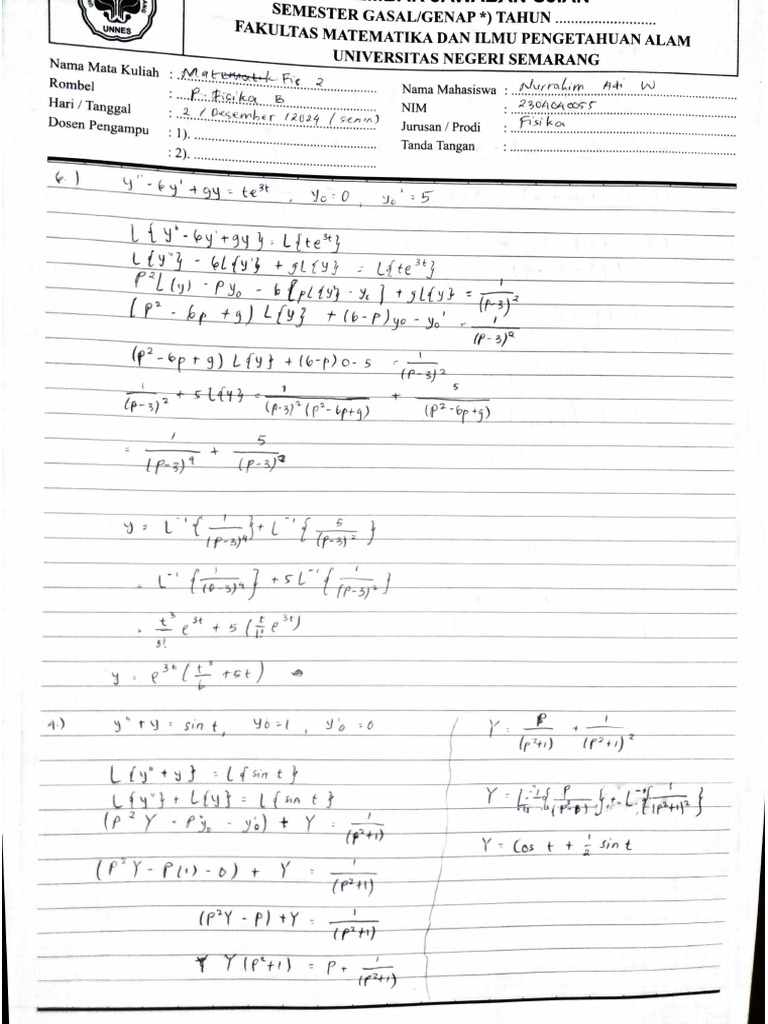 UNNES
SEMESTER GASAL/GENAP *) TAHUN ..............................
FAKULTAS MATEMATIKA DAN ILMU PENGETAHUAN ALAM
UNIVERSITAS NEGERI SEMARANG
Nama Mata Kuliah : Matematik Fis 2
Rombel : P. Fisika B
Hari / Tanggal : 2 / Desember / 2024 (senin)
Dosen Pengampu : 1). ..............................
: 2). ..............................
Nama Mahasiswa : Nurrahim Adi W
NIM : 2304040055
Jurusan / Prodi : Fisika
Tanda Tangan : ..............................
6.) y" - 6y' + 9y = te^3t , y0 = 0 , y0' = 5
L{y" - 6y' + 9y} = L{te^3t}
L{y"} - 6L{y'} + 9L{y} = L{te^3t}
P^2 L(y) - Py0 - 6[pL{y} - y0] + 9L{y} = 1/(P-3)^2
(P^2 - 6p + 9) L{y} + (6-P)y0 - y0' = 1/(P-3)^2
(P^2 - 6p + 9) L{y} + (6-p)0 - 5 = 1/(P-3)^2
1/(P-3)^2 + 5 L{y} = 1/(P-3)^2(P^2-6p+9) + 5/(P^2-6p+9)
= 1/(P-3)^4 + 5/(P-3)^2
y = L^-1{1/(P-3)^4} + L^-1{5/(P-3)^2}
= L^-1{1/(P-3)^4} + 5L^-1{1/(P-3)^2}
= t^3/3! e^3t + 5(t/1! e^3t)
y = e^3t(t^3/6 + 5t)
4.) y" + y = sin t, y0=1, y'0 = 0
L{y" + y} = L{sin t}
L{y"} + L{y} = L{sin t}
(P^2 Y - Py0 - y'0) + Y = 1/(P^2+1)
(P^2Y - P(1) - 0) + Y = 1/(P^2+1)
(P^2Y - P) + Y = 1/(P^2+1)
Y(P^2+1) = P + 1/(P^2+1)
Y = P/(P^2+1) + 1/(P^2+1)^2
Y = L^-1{P/ } + L^-1{1/(P^2+1)^2}
Y = Cos t + 1/2 sin t